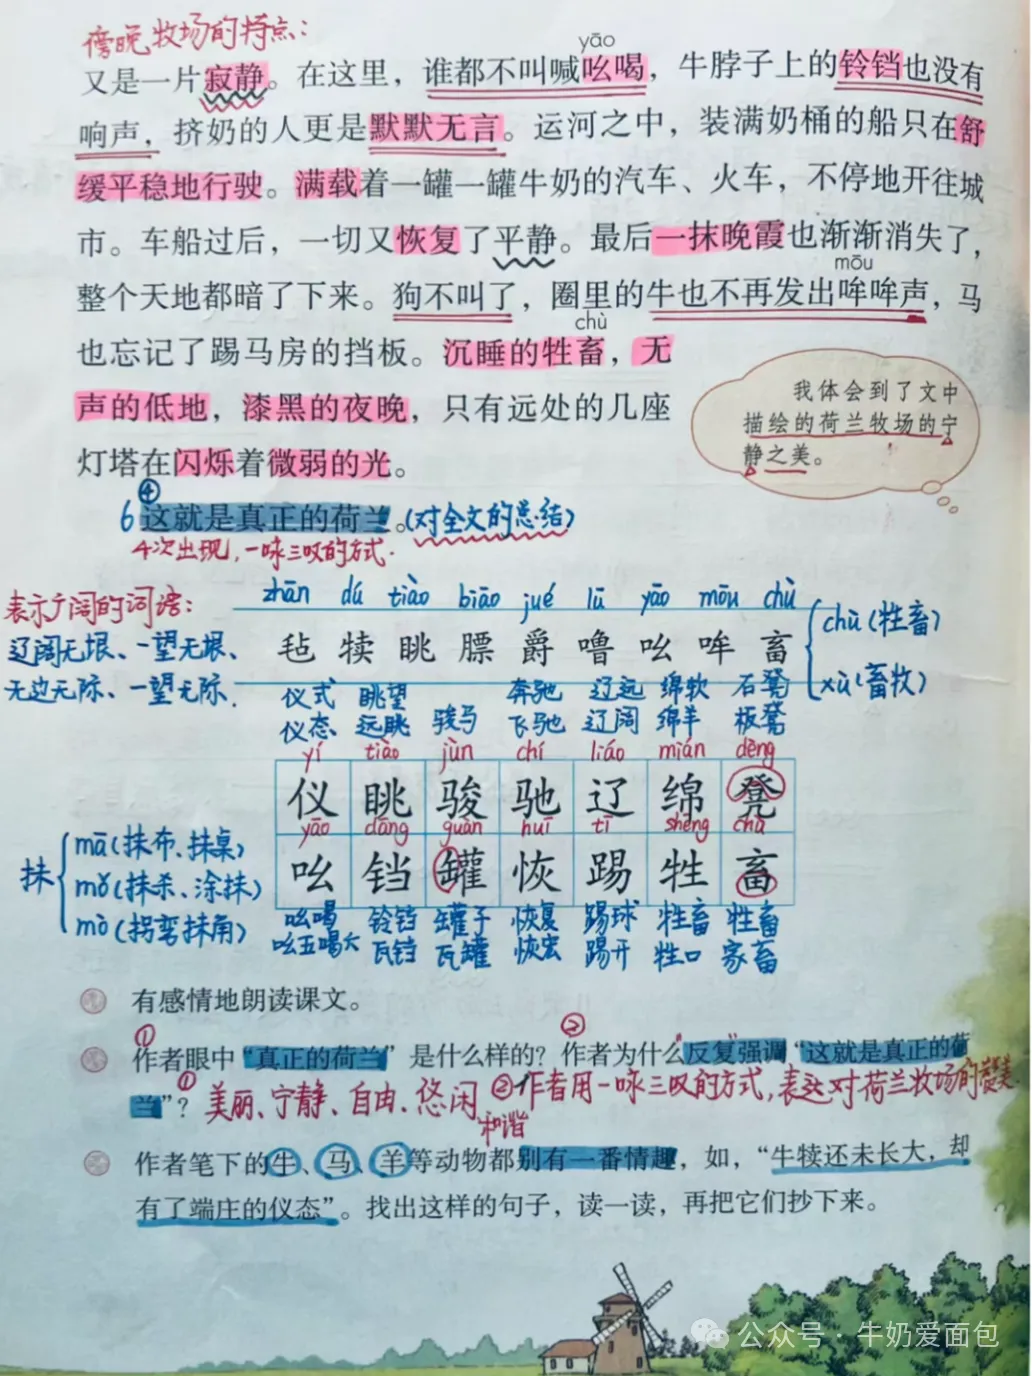 傍晚牧场的特点：
yāo
又是一片寂静。在这里，谁都不叫喊吆喝，牛脖子上的铃铛也没有
响声，挤奶的人更是默默无言。运河之中，装满奶桶的船只在舒
缓平稳地行驶。满载着一罐一罐牛奶的汽车、火车，不停地开往城
市。车船过后，一切又恢复了平静。最后一抹晚霞也渐渐消失了，
mōu
整个天地都暗了下来。狗不叫了，圈里的牛也不再发出哞哞声，马
chù
也忘记了踢马房的挡板。沉睡的牲畜，无
声的低地，漆黑的夜晚，只有远处的几座
灯塔在闪烁着微弱的光。
我体会到了文中
描绘的荷兰牧场的宁
静之美。
④
6 这就是真正的荷兰。(对全文的总结)
4次出现，一咏三叹的方式.
表示广阔的词语：
辽阔无垠、一望无垠、
无边无际、一望无际.
zhān dú tiào biāo jué lū yāo mōu chù
毡 犊 眺 膘 爵 噜 吆 哞 畜
chù(牲畜)
xù(畜牧)
仪式 眺望 奔驰 辽远 绵软 石凳
仪态 远眺 骏马 飞驰 辽阔 绵羊 板凳
yí tiào jùn chí liáo mián dèng
仪 眺 骏 驰 辽 绵 凳
yāo dāng guàn huī tī shēng chù
吆 铛 罐 恢 踢 牲 畜
吆喝 铃铛 罐子 恢复 踢球 牲畜 牲畜
吆五喝六 瓦铛 瓦罐 恢宏 踢开 牲口 家畜
抹
mā(抹布、抹桌)
mǒ(抹杀、涂抹)
mò(拐弯抹角)
有感情地朗读课文。
① ②
作者眼中“真正的荷兰”是什么样的？作者为什么反复强调“这就是真正的荷
兰”？①美丽、宁静、自由、悠闲 ②作者用一咏三叹的方式，表达对荷兰牧场的赞美
和谐
作者笔下的牛、马、羊等动物都别有一番情趣，如，“牛犊还未长大，却
有了端庄的仪态”。找出这样的句子，读一读，再把它们抄下来。
公众号·牛奶爱面包